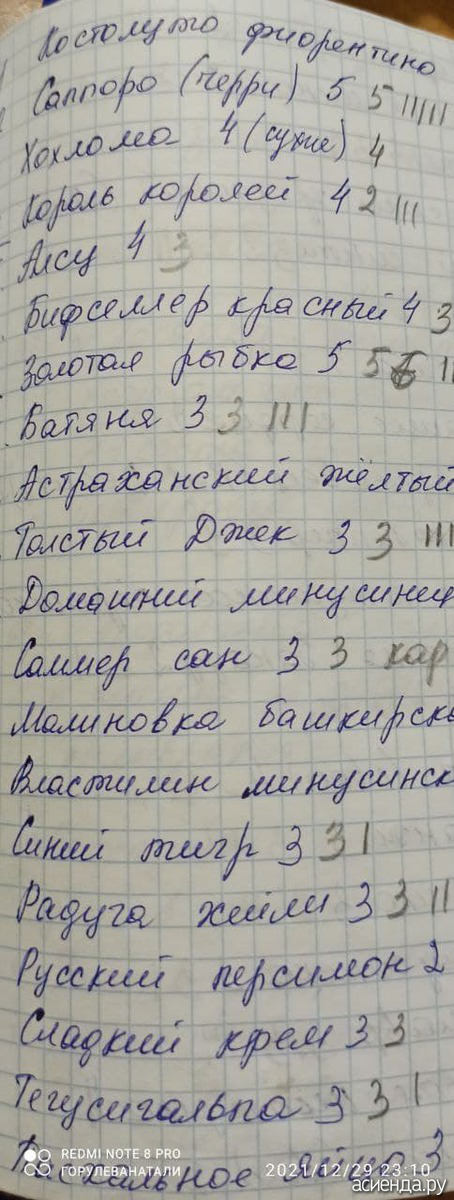 Костолуто фиорентино
Саппоро (черри) 5 5 IIIII
Хохлома 4 (сухие) 4
Король королей 4 2 III
Алсу 4 3
Бифселлер красный 4 3
Золотая рыбка 5 5 II
Батяня 3 3 III
Астраханский жёлтый
Толстый Джек 3 3 III
Домашний минусинц
Саммер сан 3 3 кар
Малиновка башкирска
Властилин минусинск
Синий тигр 3 3 I
Радуга хейли 3 3 II
Русский персимон 2
Сладкий крем 3 3
Тегусигальпа 3 3 I
Пасхальное яйцо 3
REDMI NOTE 8 PRO
ГОРУЛЕВАНАТАЛИ
2021/12/29 23:10
асиенда.ру